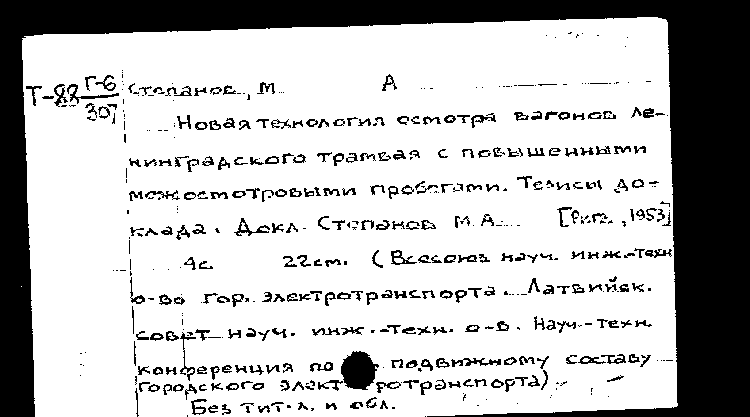 Т-88 Г-6/307
Степанов, М А
Новая технология осмотра вагонов ле-
нинградского трамвая с повышенными
межосмотровыми пробегами. Тезисы до-
клада. Докл. Степанов М.А. [Рига, 1953]
4с. 22см. (Всесоюз науч. инж.-техн
о-во гор. электротранспорта. Латвийск.
совет науч. инж.-техн. о-в. Науч.-техн.
конференция по подвижному составу
городского электротранспорта)
Без тит. л. и обл.